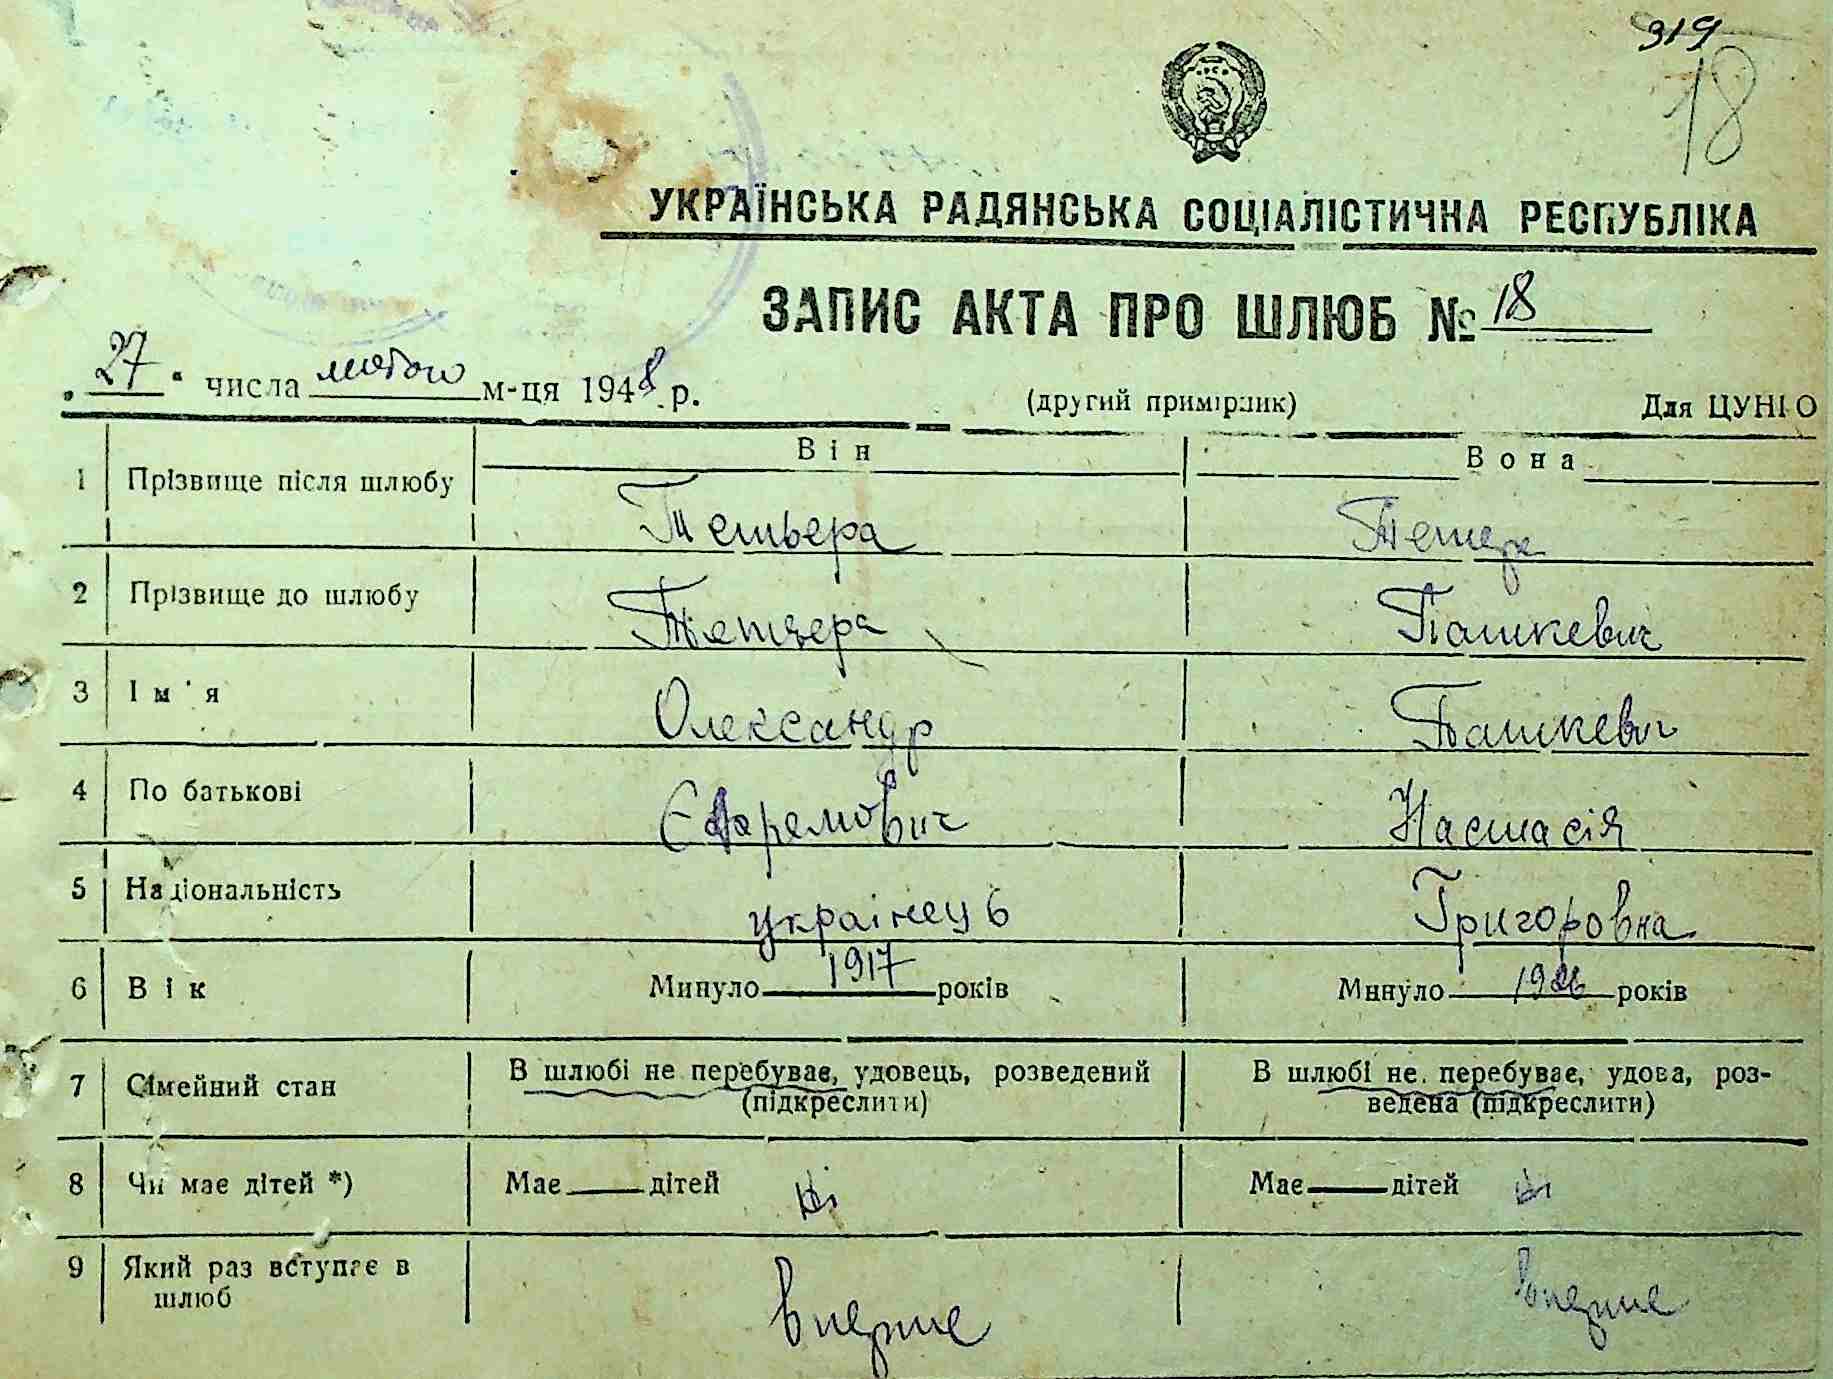 319
18
УКРАЇНСЬКА РАДЯНСЬКА СОЦІАЛІСТИЧНА РЕСПУБЛІКА
ЗАПИС АКТА ПРО ШЛЮБ № 18
"27" числа лютого м-ця 1948 р. (другий примірник) Для ЦУНГО
Він Вона
1 Прізвище після шлюбу Тетьера Тетера
2 Прізвище до шлюбу Тетьера Пашкевич
3 Ім'я Олександр Пашкевич
4 По батькові Єфремович Настасія
5 Національність українець Григоровна
6 Вік Минуло 1917 років Минуло 1926 років
7 Сімейний стан В шлюбі не перебуває, удовець, розведений В шлюбі не перебуває, удова, роз-
(підкреслити) ведена (підкреслити)
8 Чи має дітей *) Має дітей ні Має дітей ні
9 Який раз вступає в
шлюб вперше вперше